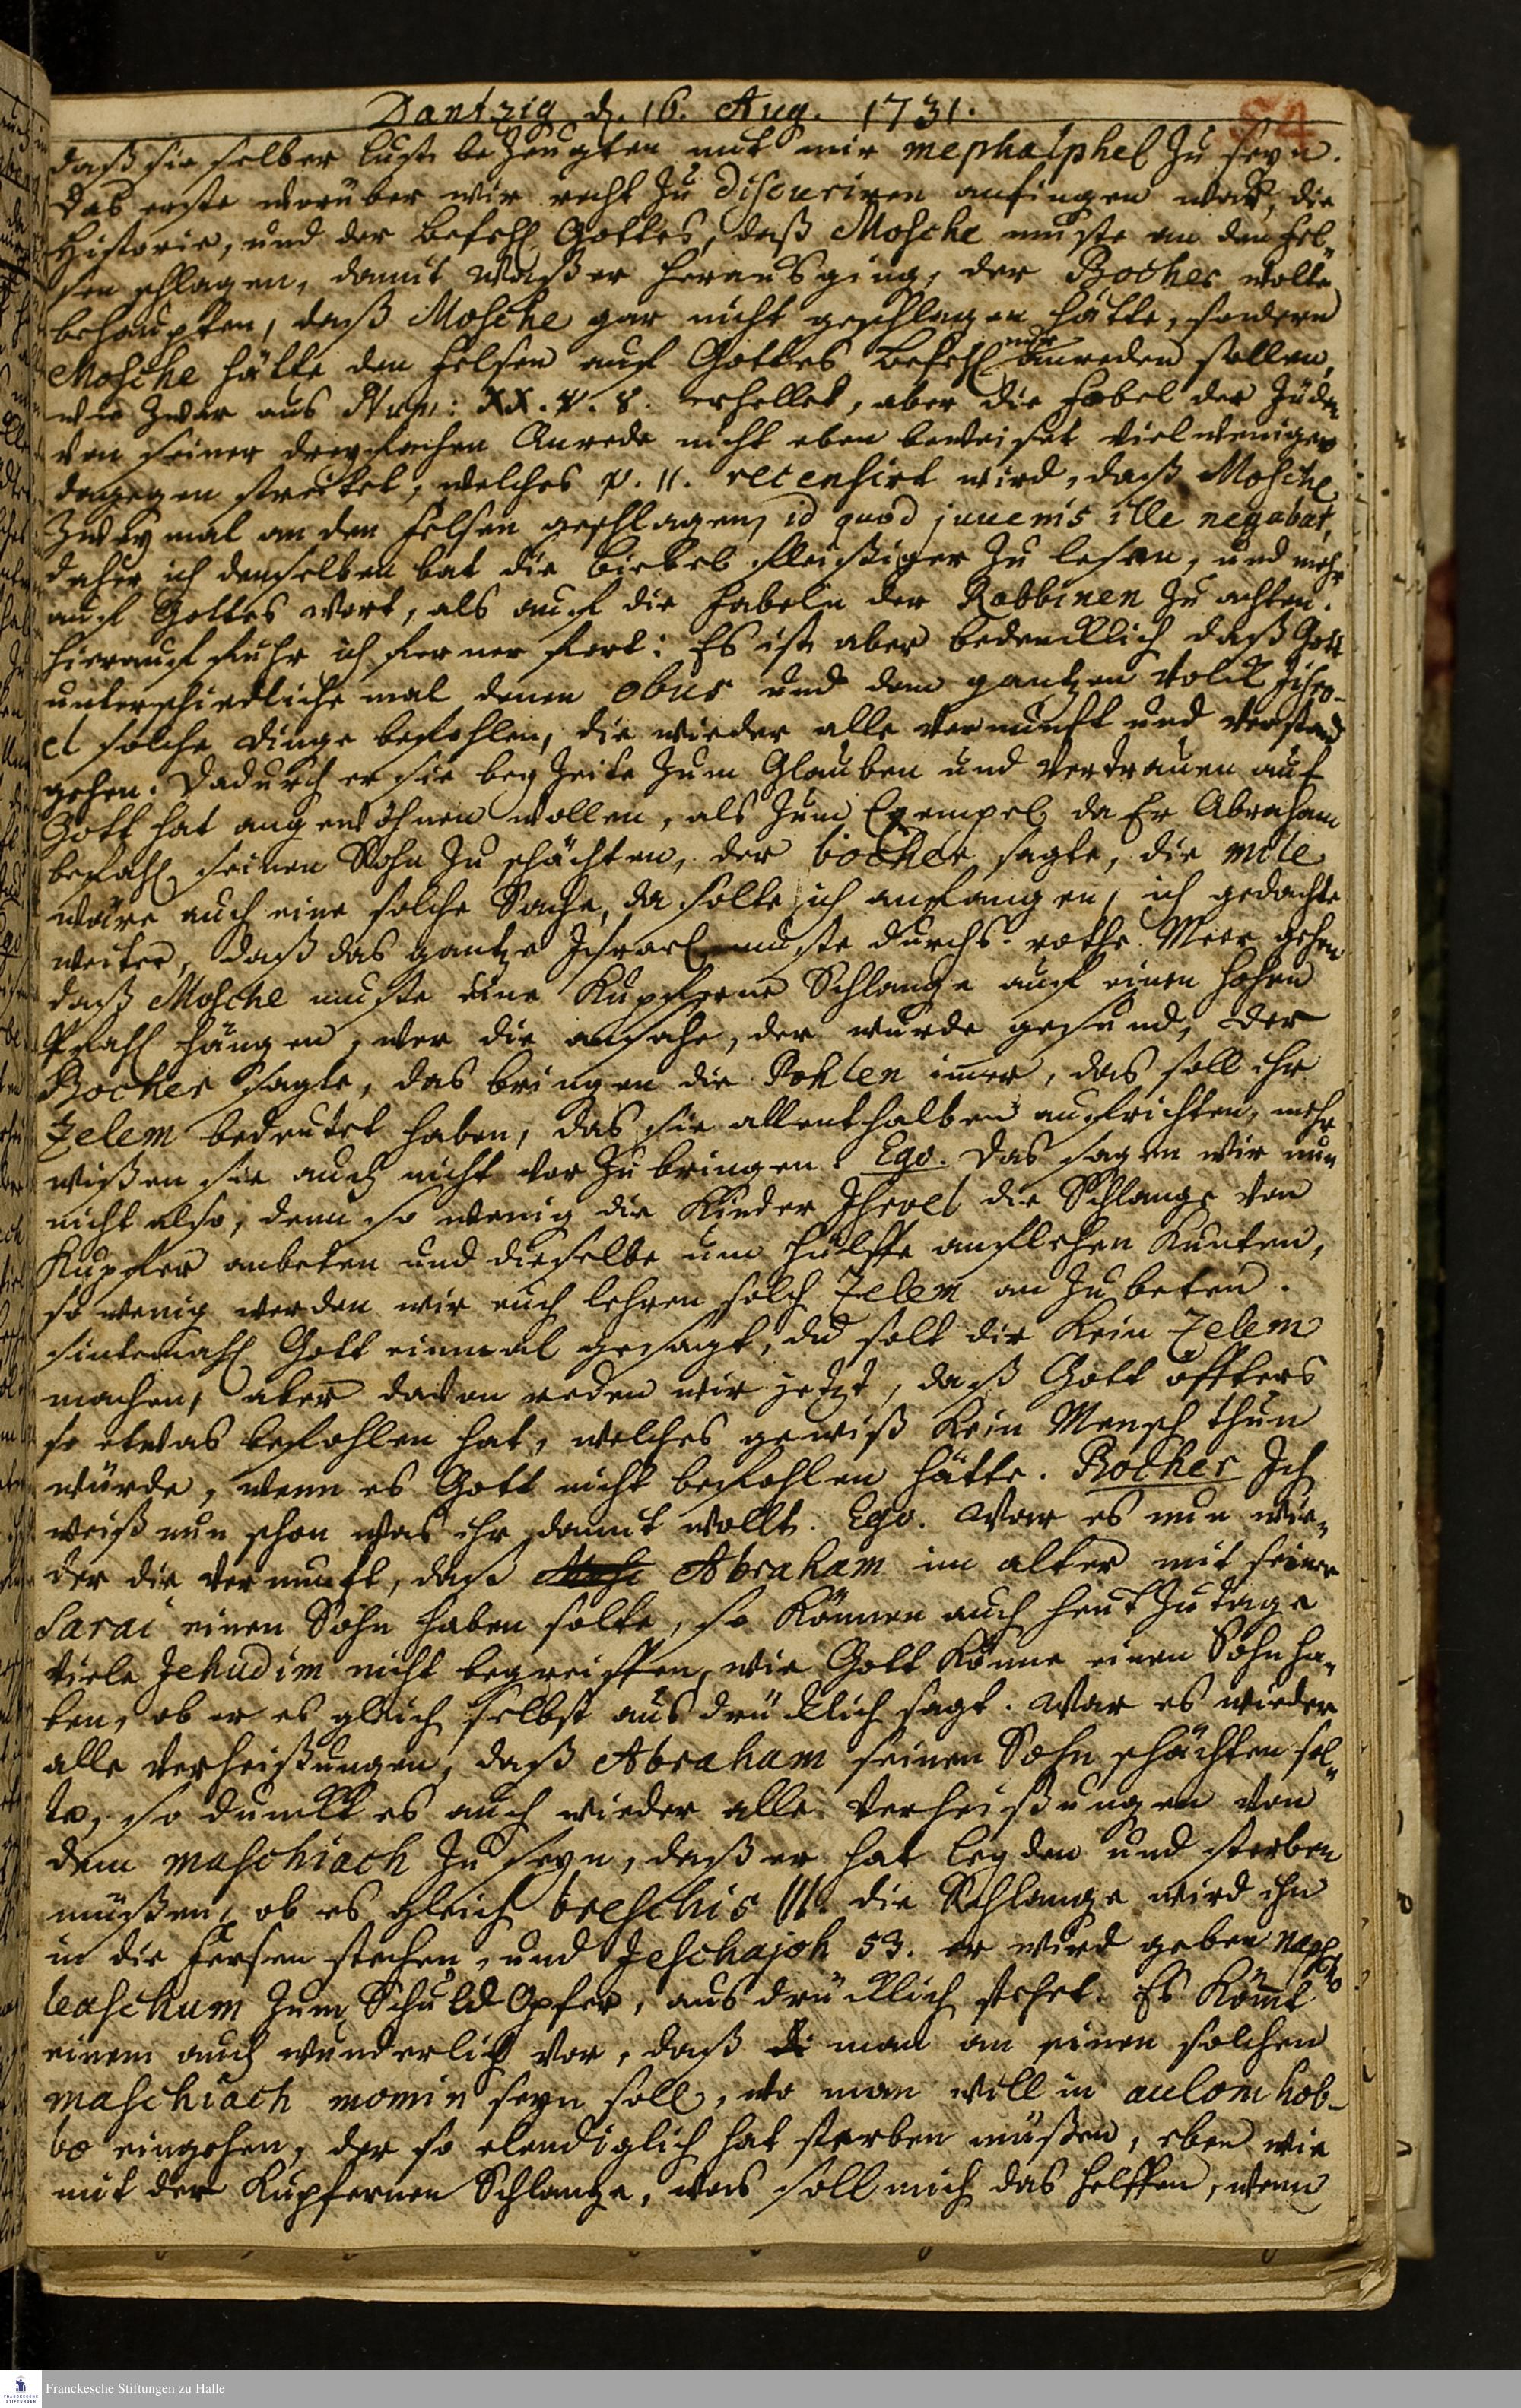 Dantzig d. 16. Aug. 1731.
54
daß sie selber lust bezeugten mit mir mephalphel zu seyn.
das erste worüber wir recht zu discuriren anfingen war, die
Historie, und der Befehl Gottes, daß Mosche muste an den Fel-
sen schlagen, damit Waßer herausging, der Bocher wolte
behaupten, daß Mosche gar nicht geschlagen hätte, sondern
Mosche hätte den Felsen auf Gottes Befehl nur anreden sollen,
wie zwar aus Num: XX. v. 8. erhellet, aber die Fabel der Jüden
von seiner dreyfachen Anrede nicht eben beweiset vielweniger
dagegen streitet, welches v. 11. recensirt wird, daß Mosche
Zweymal an den Felsen geschlagen, id quod juvenis ille negabat,
daher ich denselben bat die Biebel fleißiger zu lesen, und mehr
auf Gottes Wort, als auf die Fabeln der Rabbinen zu achten.
Hierauf fuhr ich ferner fort: Es ist aber bedencklich daß Gott
unterschiedliche mal denen obus und dem gantzen Volck Jisro-
el solche dinge befohlen, die wieder alle Vernunft und Verstand
gehen. Dadurch er sie bey Zeite zum Glauben und Vertrauen auf
Gott hat angewöhnen wollen, als zum Exempel da Er Abraham
befahl seinen Sohn zu schächten, der bocher sagte, die mile
wäre auch eine solche Sache, da solte ich anfangen, ich gedachte
weiter, daß das gantze Jsrael muste durchs rothe Meer gehen
daß Mosche muste eine Kupferne Schlange auf einen hohen
Pfahl hängen, wer die ansahe, der wurde gesund, der
Bocher sagte, das bringen die Pohlen immer, das soll ihr
Zelem bedeutet haben, das sie allenthalben aufrichten, mehr
wißen sie auch nicht vor zu bringen. Ego. Das sagen wir nun
nicht also, denn so wenig die Kinder Jsroel die Schlange von
Kupfer anbeten und dieselbe um Hülffe anflehen kunten,
so wenig werden wir euch lehren solch Zelem an zu beten.
sintemahl Gott einmal gesagt, du solt dir kein Zelem
machen, aber davon reden wir jetzt, daß Gott öffters
so etwas befohlen hat, welches gewiß kein Mensch thun
würde, wenn es Gott nicht befohlen hätte. Bocher Jch
weiß nun schon was ihr damit wollt. Ego. War es nun wie-
der die Vernunft, daß Abraham im alter mit seiner
Sarai einen Sohn haben solte, so können auch heut zu tage
viele Jehudim nicht begreiffen, wie Gott könne einen Sohn ha-
ben, ob er es gleich selbst ausdrücklich sagt. War es wieder
alle Verheißungen, daß Abraham seinen Sohn schächten sol-
te, so dunckt es auch wieder alle Verheißungen von
dem maschiach zu seyn, daß er hat leyden und sterben
müßen, ob es gleich breschis III. die Schlange wird ihn
in die Fersen stechen, und Jeschajoh 53. er wird geben naphscho
leaschum zum SchuldOpfer, ausdrücklich stehet. Es kömt
einem auch wunderlich vor, daß man an einen solchen
maschiach momin seyn soll, wo man will in aulom hob-
bo eingehen, der so elendiglich hat sterben müßen, eben wie
mit der Kupfernen Schlange, was soll mich das helffen, wenn
Franckesche Stiftungen zu Halle